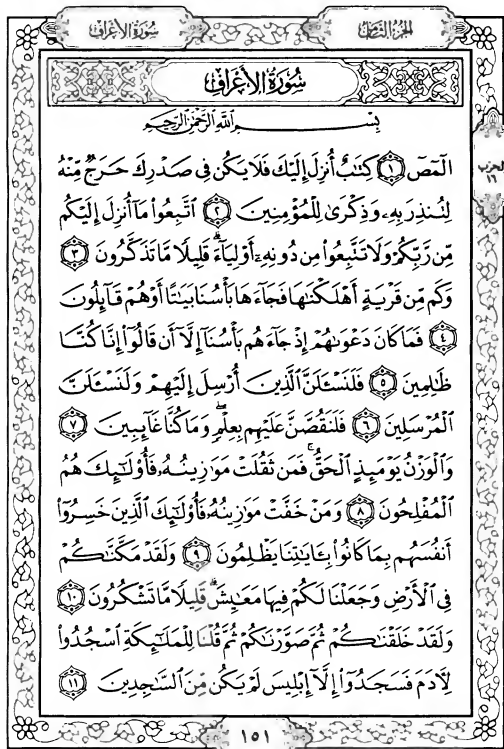 سُورَةُ الأَعْرَافِ
الجُزْءُ الثَّامِنُ
سُورَةُ الأَعْرَافِ
بِسْمِ اللَّهِ الرَّحْمَٰنِ الرَّحِيمِ
الٓمٓصٓ ١ كِتَٰبٌ أُنزِلَ إِلَيْكَ فَلَا يَكُن فِى صَدْرِكَ حَرَجٌ مِّنْهُ
الحزب ١٦
لِتُنذِرَ بِهِۦ وَذِكْرَىٰ لِلْمُؤْمِنِينَ ٢ ٱتَّبِعُوا۟ مَآ أُنزِلَ إِلَيْكُم
مِّن رَّبِّكُمْ وَلَا تَتَّبِعُوا۟ مِن دُونِهِۦٓ أَوْلِيَآءَ ۗ قَلِيلًا مَّا تَذَكَّرُونَ ٣
وَكَم مِّن قَرْيَةٍ أَهْلَكْنَٰهَا فَجَآءَهَا بَأْسُنَا بَيَٰتًا أَوْ هُمْ قَآئِلُونَ
٤ فَمَا كَانَ دَعْوَىٰهُمْ إِذْ جَآءَهُم بَأْسُنَآ إِلَّآ أَن قَالُوٓا۟ إِنَّا كُنَّا
ظَٰلِمِينَ ٥ فَلَنَسْـَٔلَنَّ ٱلَّذِينَ أُرْسِلَ إِلَيْهِمْ وَلَنَسْـَٔلَنَّ
ٱلْمُرْسَلِينَ ٦ فَلَنَقُصَّنَّ عَلَيْهِم بِعِلْمٍ ۖ وَمَا كُنَّا غَآئِبِينَ ٧
وَٱلْوَزْنُ يَوْمَئِذٍ ٱلْحَقُّ ۚ فَمَن ثَقُلَتْ مَوَٰزِينُهُۥ فَأُو۟لَٰٓئِكَ هُمُ
ٱلْمُفْلِحُونَ ٨ وَمَنْ خَفَّتْ مَوَٰزِينُهُۥ فَأُو۟لَٰٓئِكَ ٱلَّذِينَ خَسِرُوٓا۟
أَنفُسَهُم بِمَا كَانُوا۟ بِـَٔايَٰتِنَا يَظْلِمُونَ ٩ وَلَقَدْ مَكَّنَّٰكُمْ
فِى ٱلْأَرْضِ وَجَعَلْنَا لَكُمْ فِيهَا مَعَٰيِشَ ۗ قَلِيلًا مَّا تَشْكُرُونَ ١٠
وَلَقَدْ خَلَقْنَٰكُمْ ثُمَّ صَوَّرْنَٰكُمْ ثُمَّ قُلْنَا لِلْمَلَٰٓئِكَةِ ٱسْجُدُوا۟
لِـَٔادَمَ فَسَجَدُوٓا۟ إِلَّآ إِبْلِيسَ لَمْ يَكُن مِّنَ ٱلسَّٰجِدِينَ ١١
١٥١